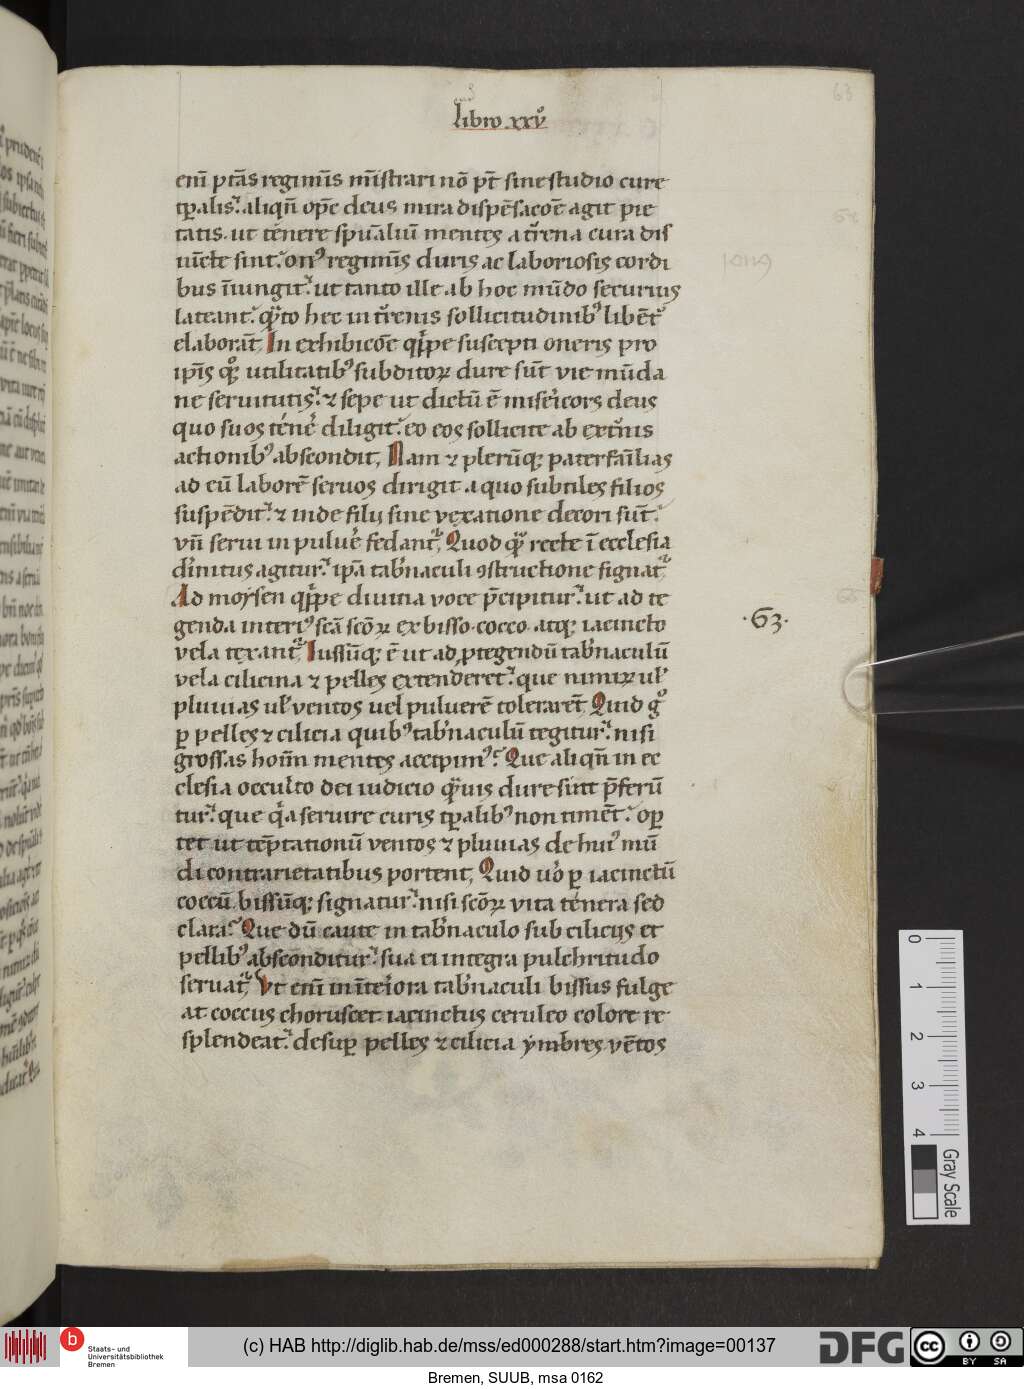 libro xxvͦ
63
eni᷃ pt̄as regimīs mīstrari nō pt̄ sine studio cure
tp̄alis. aliqn̄ ope᷃ deus mira dispēsacōe agit pie
tatis. ut tenere spūaliū mentes a t̄rena cura dis
uīcte sint. on᷒ regimīs duris ac laboriosis cordi
bus īiungit. ut tanto ille ab hoc mūdo securius
lateant. qͣ̄to hec in t̄renis sollicitudinib᷒ libēt᷒
elaborāt. In exhibicōe qͥppe suscepti oneris pro
ip̄is qꝫ utilitatib᷒ subditoꝝ dure sūt vie mūda
ne seruitutis. ⁊ sepe ut dictū ē miser̄icors deus
quo suos tener̄ diligit. eo eos sollicite ab ext̄nis
actionib᷒ abscondit. Nam ⁊ plerūqꝫ paterfamīlias
ad eū laborē seruos dirigit. a quo subtiles filios
suspēdit. ⁊ inde filij sine vexatione decori sūt.
vn̄ serui in puluer̄ fedant᷑. Quod qͣ̄ recte ī ecclesia
diuīnitus agitur. ip̄a tabn̄aculi ꝯstructione signat᷑
Ad moysen qͥppe diuina voce p̄cipitur. ut ad te
genda interi᷒ sc̄a sc̄oꝝ ex bisso. cocco. atqꝫ iacincto
·63·
vela texant᷑. Iussūqꝫ ē ut ad ꝓtegendū tabn̄aculū
vela cilicina ⁊ pelles extenderet. que nimiꝝ ul̄
pluuias ul̄ ventos uel puluerē tolerarēt. Quid gͦ
ꝑ pelles ⁊ cilicia quib᷒ tabn̄aculū tegitur. nisi
grossas hoīm mentes accipim᷒. Que aliqn̄ in ec
clesia occulto dei iudicio qͣ̄uis dure sint p̄ferū
tur. que qͥa seruire curis tp̄alib᷒ non timēt. opꝑ
tet ut tēptationū ventos ⁊ pluuias de hui᷒ mū
di contrarietatibus portent. Quid uͦo ꝑ iacinctū
coccū. bissūqꝫ signatur. nisi sc̄oꝝ vita tenera sed
clara. Que dū caute in tabn̄aculo sub cilicijs et
pellib᷒ absconditur. sua ei integra pulchritudo
seruat᷑. Vt eni᷃ in īteriora tabn̄aculi bissus fulge
at coccus choruscet iacinctus ceruleo colore re
splendeat. desuꝑ pelles ⁊ cilicia ymbres. vētos
0
1
2
3
4
Gray Scale
b Staats- und
Universitätsbibliothek
Bremen
(c) HAB http://diglib.hab.de/mss/ed000288/start.htm?image=00137
DFG
cc BY SA
Bremen, SUUB, msa 0162